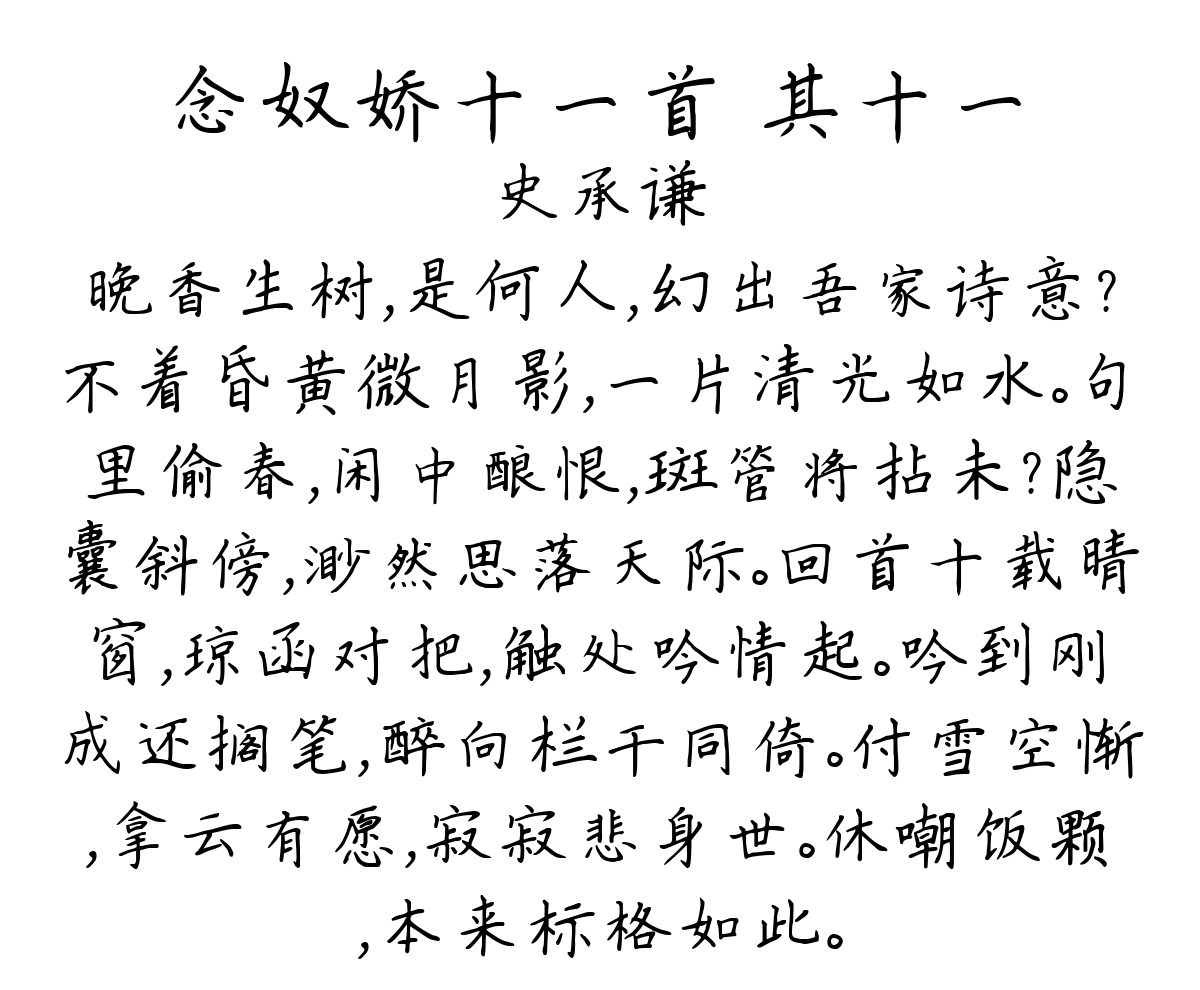 念奴娇十一首 其十一
史承谦
晚香生树,是何人,幻出吾家诗意?
不着昏黄微月影,一片清光如水。句
里偷春,闲中酿恨,斑管将拈未?隐
囊斜傍,渺然思落天际。回首十载晴
窗,琼函对把,触处吟情起。吟到刚
成还搁笔,醉向栏干同倚。付雪空惭
,拿云有愿,寂寂悲身世。休嘲饭颗
,本来标格如此。